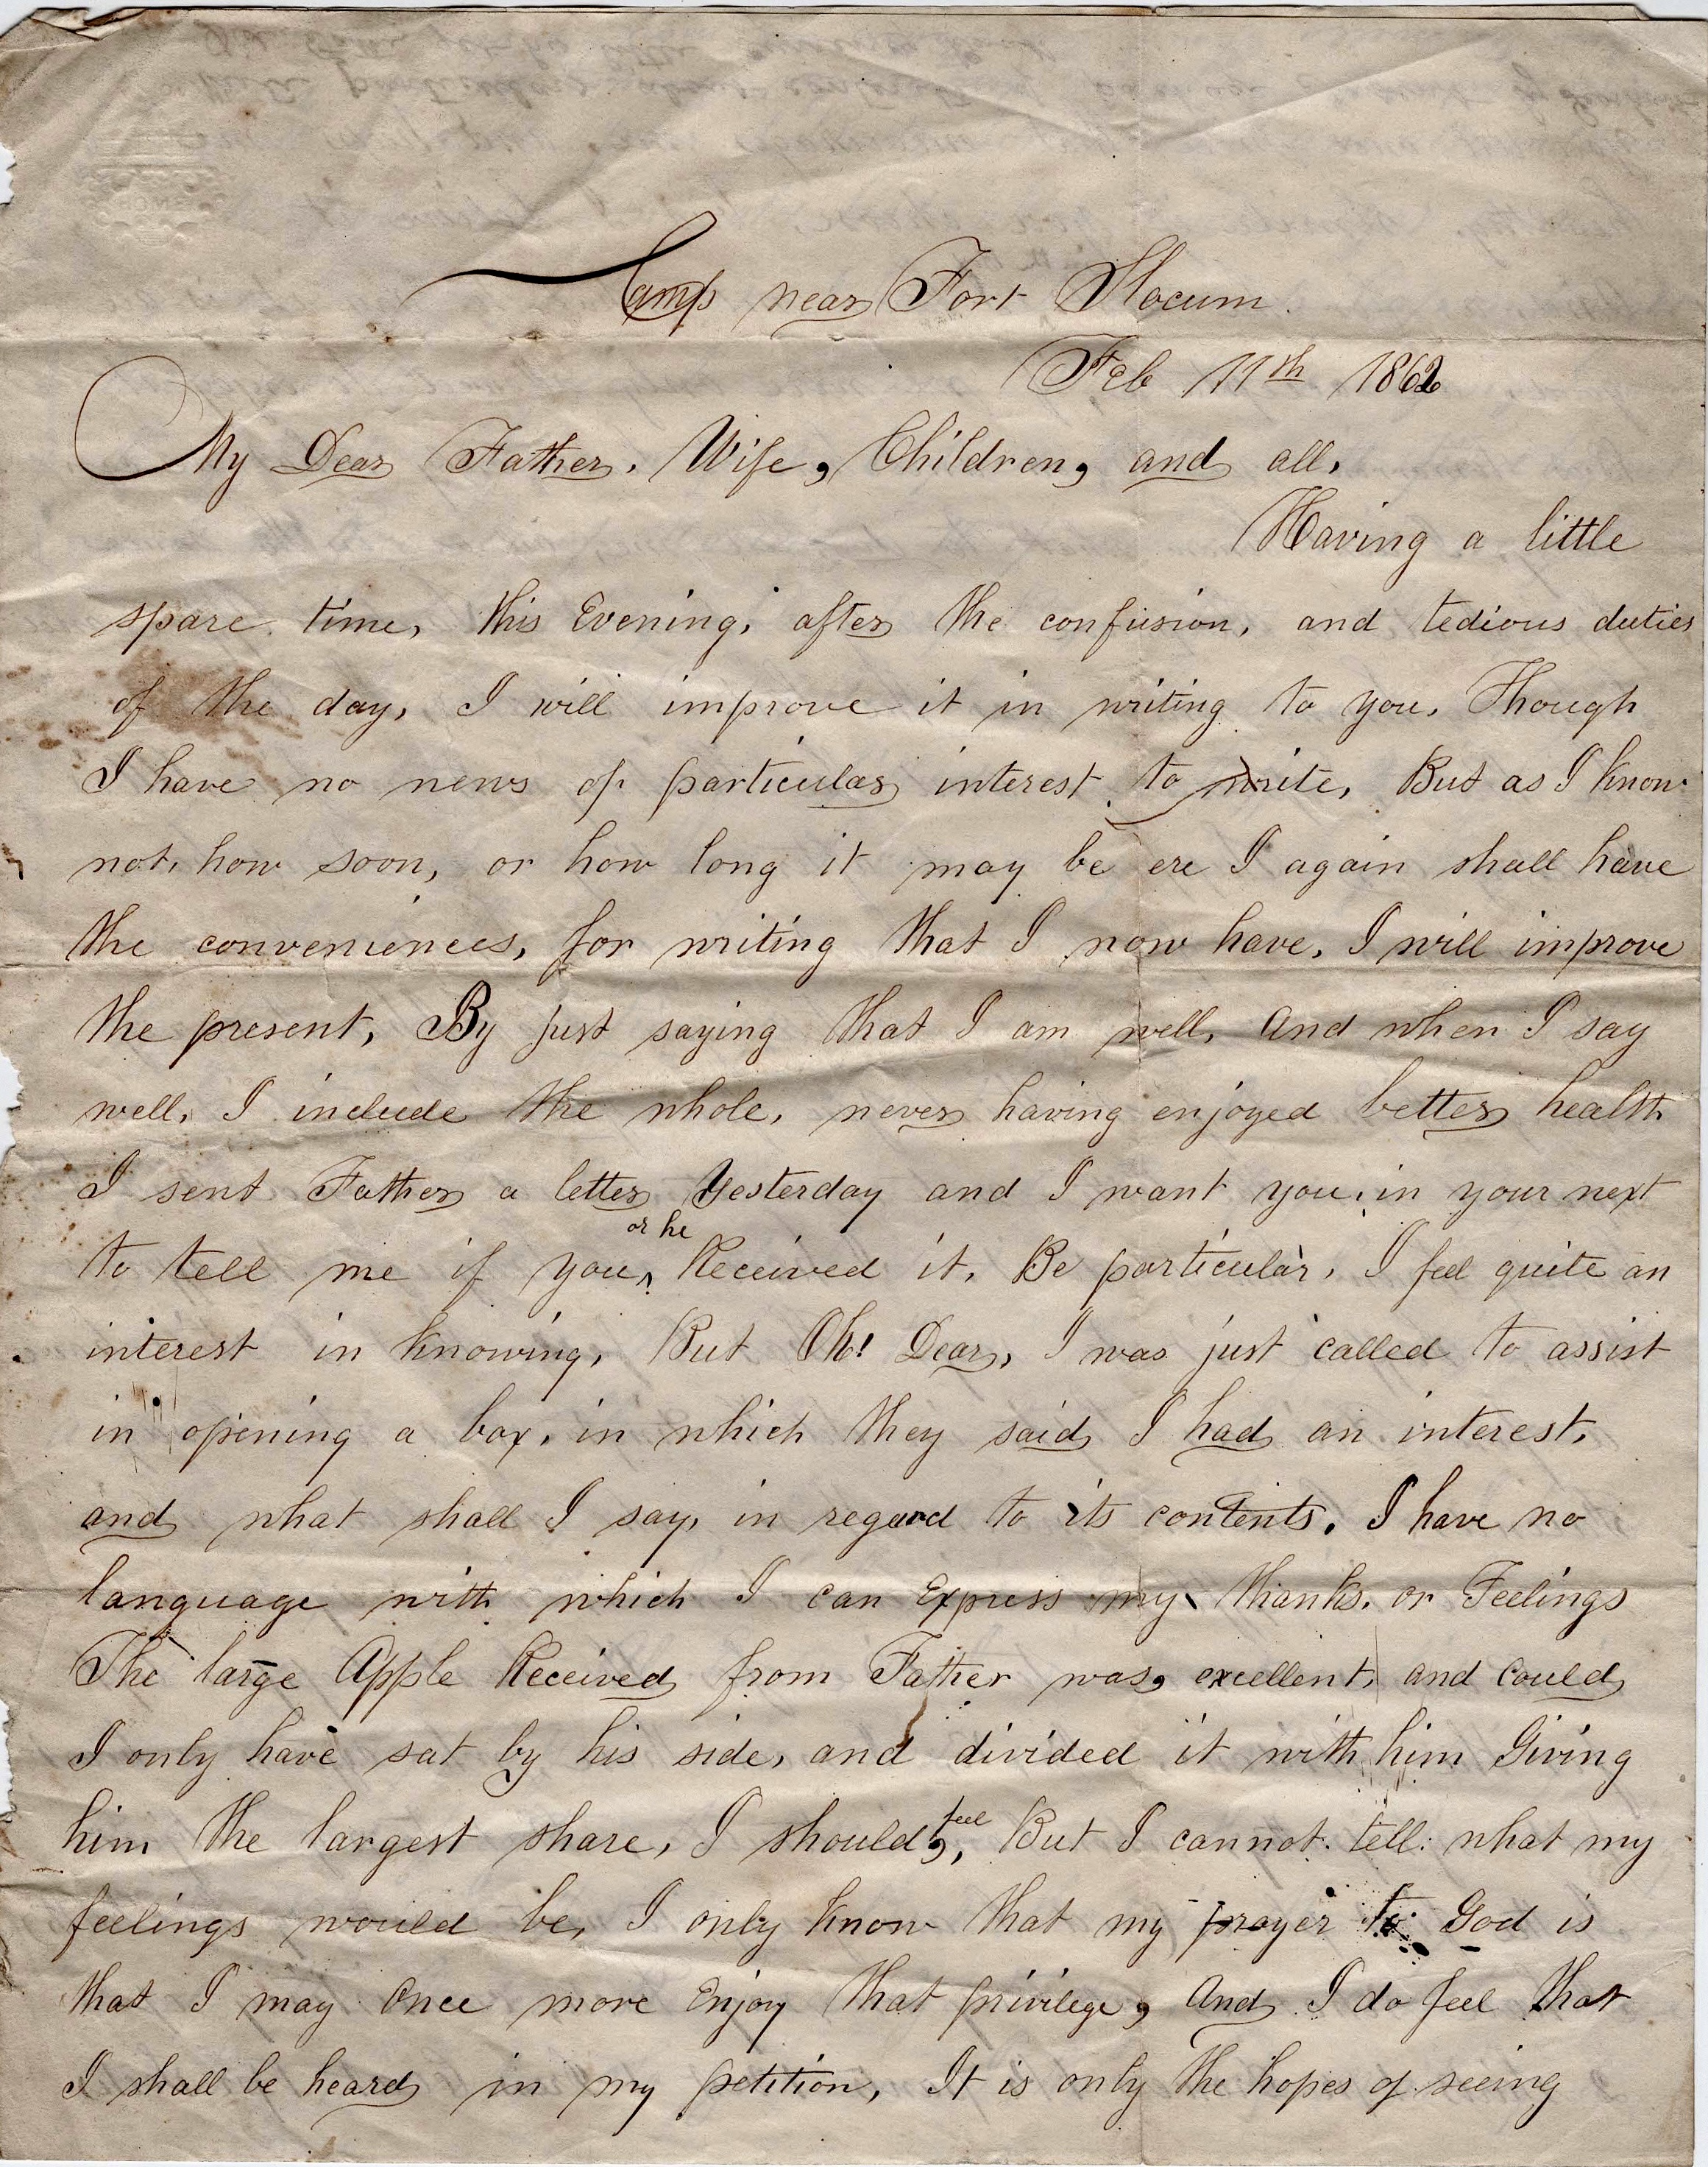 Camp near Fort Slocum.
Feb 11th 1862
My Dear Father, Wife, Children, and all,
Having a little
spare time, this Evening, after the confusion, and tedious duties
of the day, I will improve it in writing to you, Though
I have no news of particular interest to write, But as I know
not, how soon, or how long it may be ere I again shall have
the conveniences, for writing that I now have, I will improve
the present, By just saying that I am well, And when I say
well, I include the whole, never having enjoyed better health
I sent Father a letter Yesterday and I want you, in your next
to tell me if you, or he Received it, Be particular, I feel quite an
interest in knowing, But Oh! Dear, I was just called to assist
in opening a box, in which they said I had an interest,
and what shall I say, in regard to its contents. I have no
language with which I can Express my thanks, or Feelings
The large Apple Received from Father was, excellent, and could
I only have sat by his side, and divided it with him Giving
him the largest share, I should feel, But I cannot tell: what my
feelings would be, I only know that my prayer to God is
that I may Once more Enjoy that privilege, And I do feel that
I shall be heard in my petition, It is only the hopes of seeing